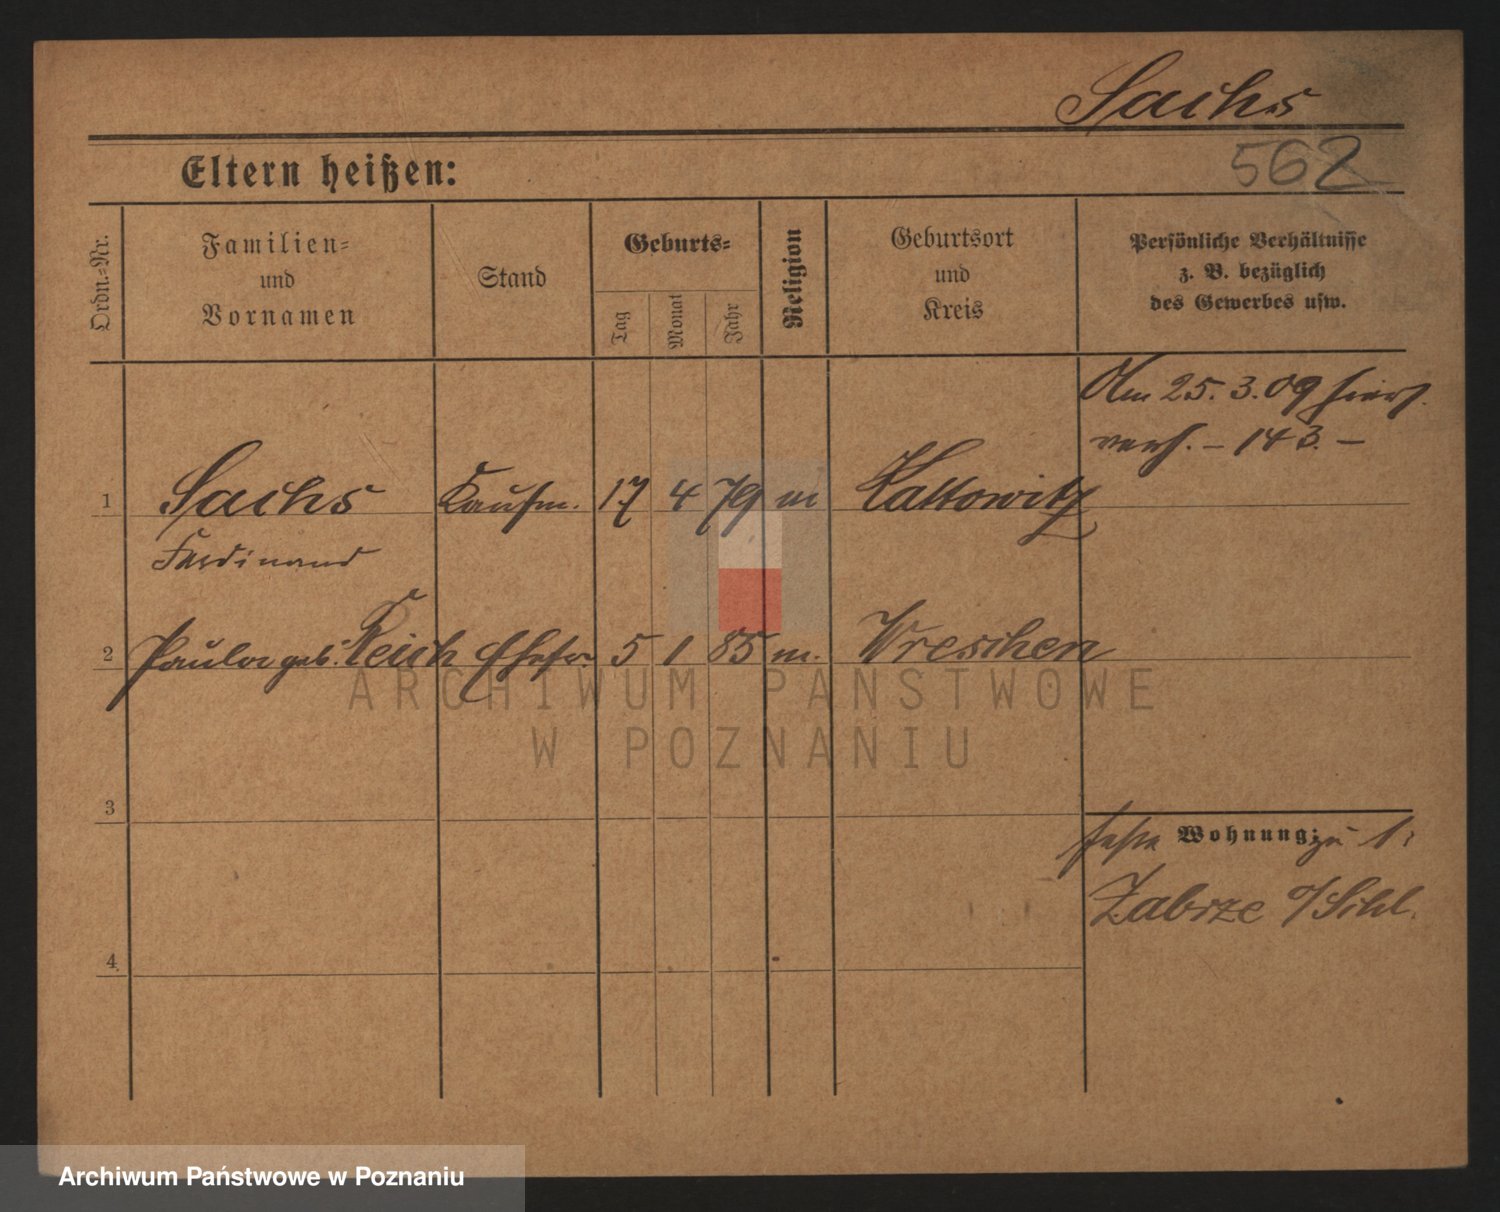 Sachs
562
Eltern heißen:
Ordn.-Nr.
Familien-
und
Vornamen
Stand
Geburts-
Tag
Monat
Jahr
Religion
Geburtsort
und
Kreis
Persönliche Verhältnisse
z. B. bezüglich
des Gewerbes usw.
Am 25. 3. 09 hier
verh. - 143. -
1 Sachs Kaufm. 17 4 79 m Kattowitz
Ferdinand
2 Paula geb. Reich Ehefr. 5 1 85 m. Wreschen
ARCHIWUM PAŃSTWOWE
W POZNANIU
3
Wohnung: zu 1:
Zabrze O/Schl.
4
Archiwum Państwowe w Poznaniu